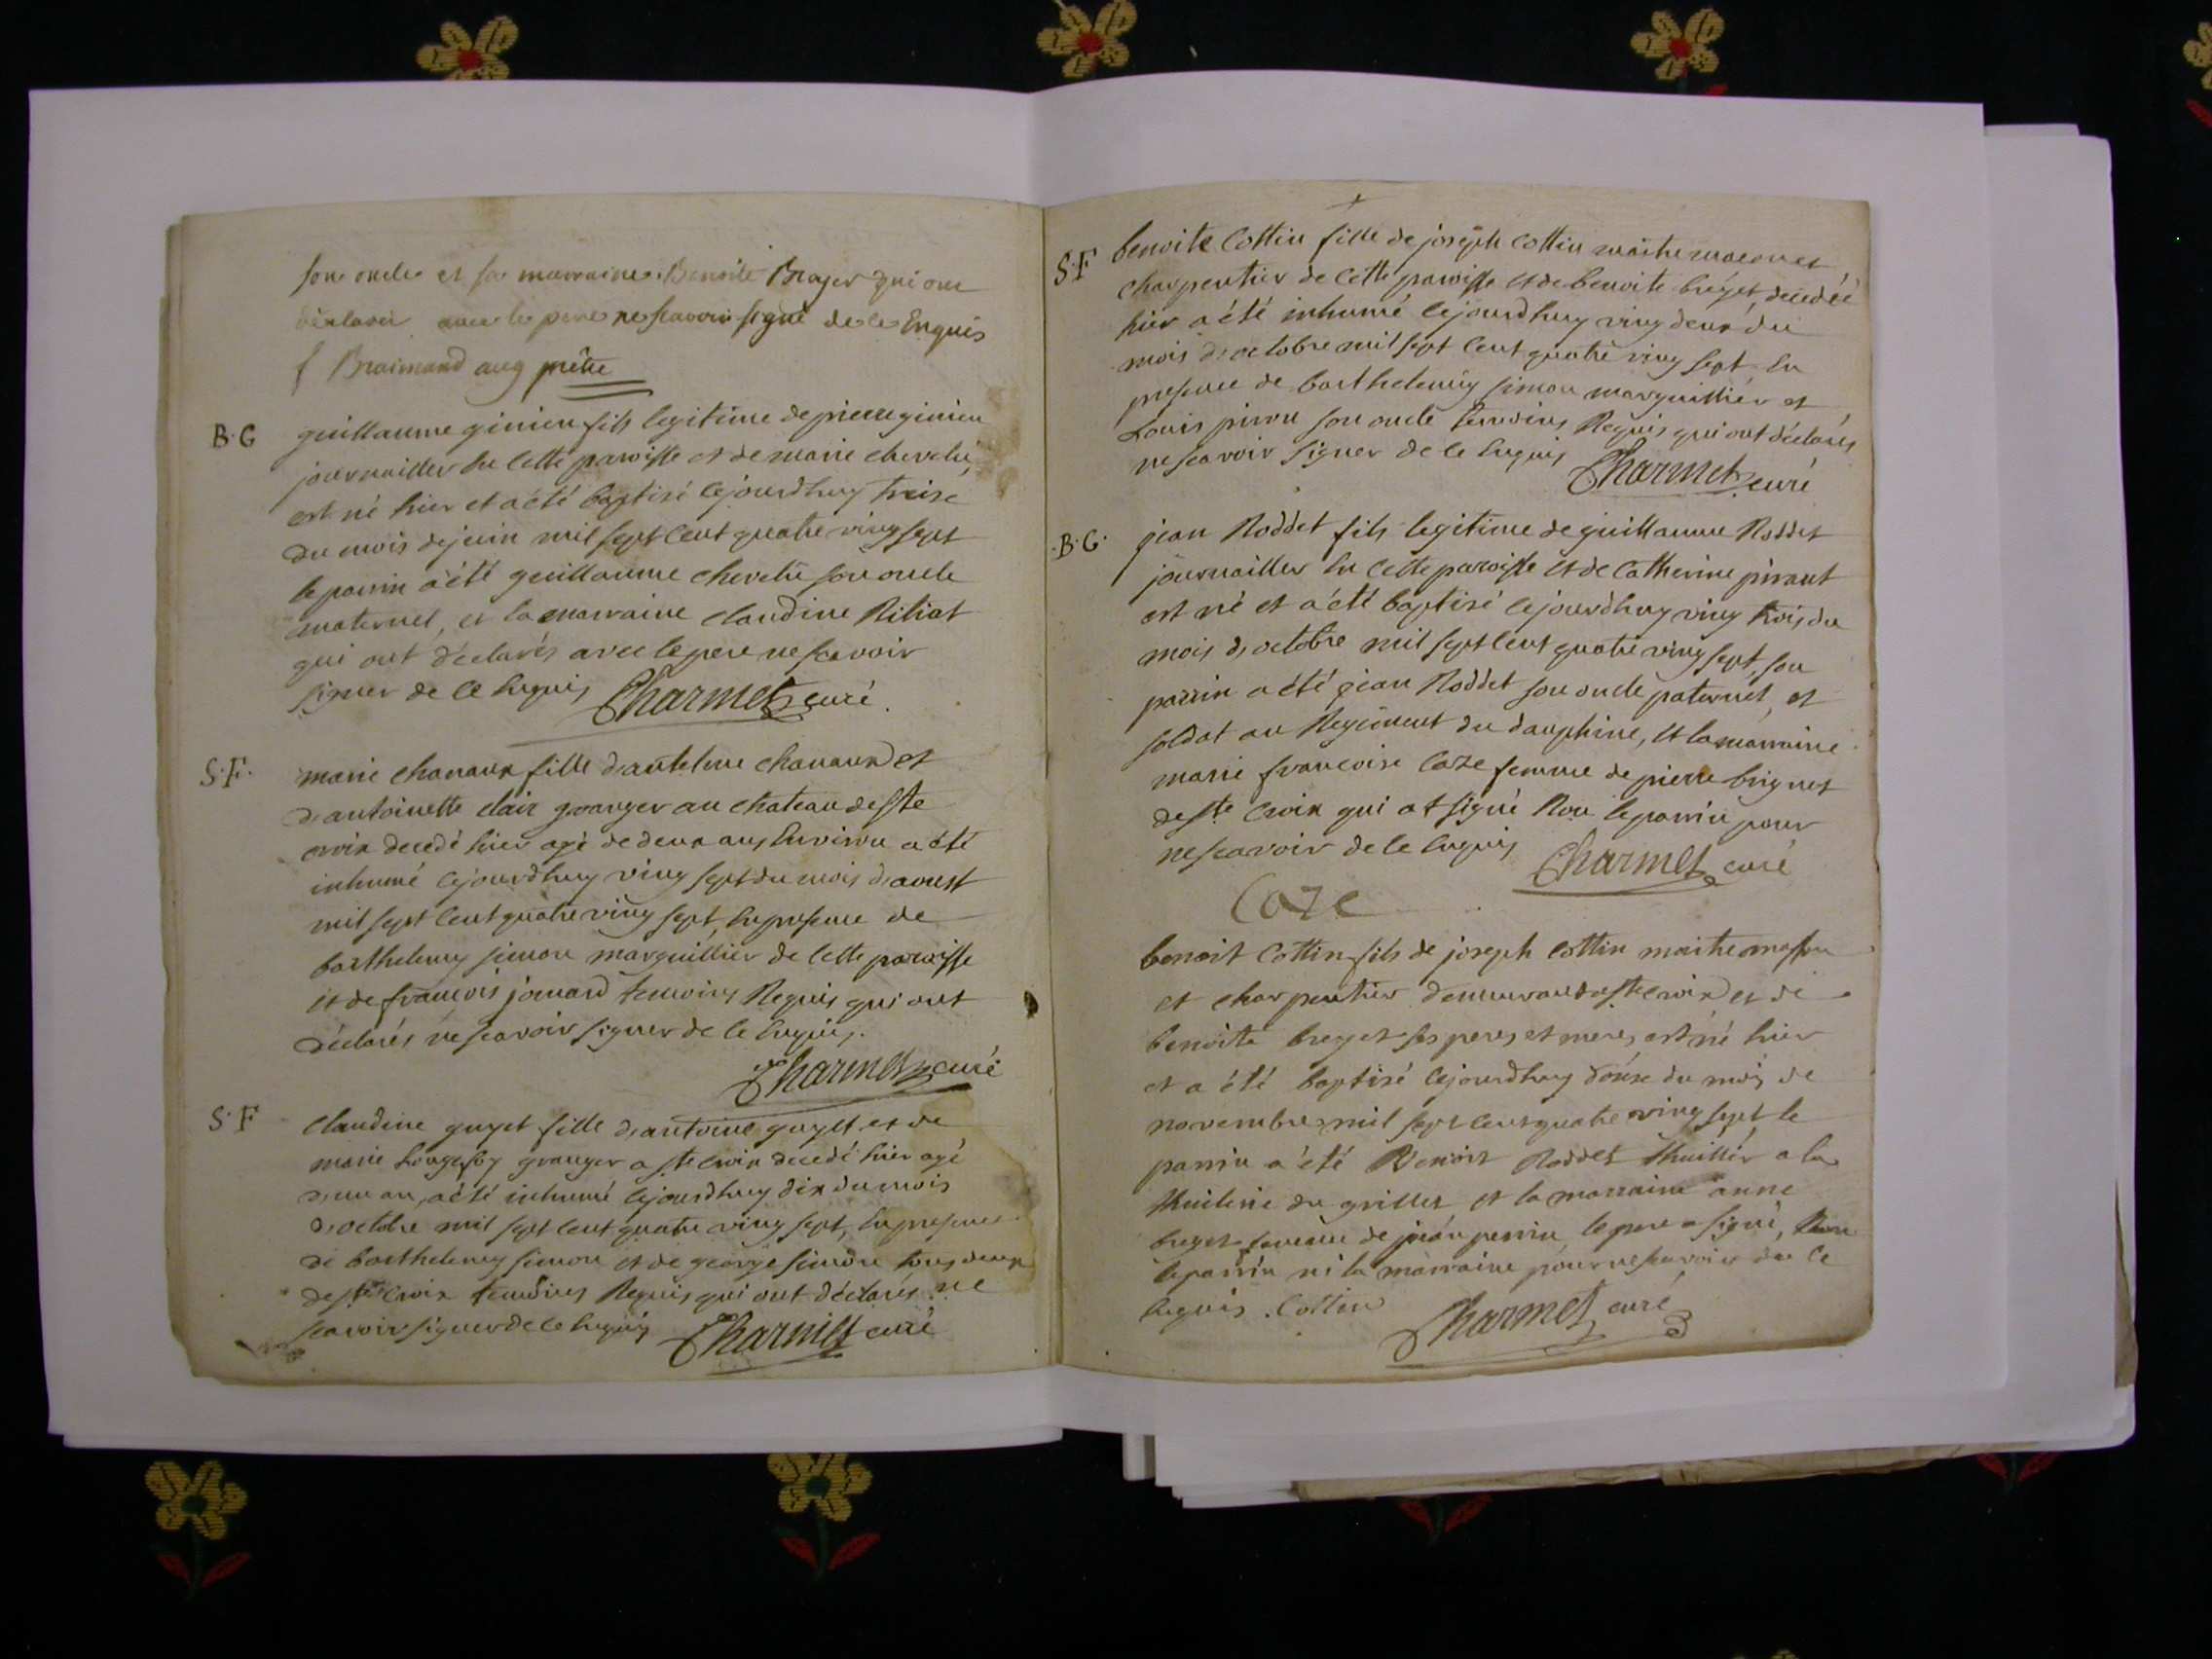 son oncle et sa marraine Benoite Brager qui ont
déclaré avec le pere ne scavoir signé de le Enquis
f Braimand aug prêtre
B.G guillaume ginieu fils legitime de pierre ginieu
journaillier en cette paroisse et de marie chevelu,
est né hier et a été baptisé cejourdhuy treise
du mois de juin mil sept cent quatre ving sept
le parrin a été guillaume chevelu son oncle
maternel, et la marraine claudine Riliat
qui ont déclarés avec le pere ne scavoir
signer de ce enquis Charmet curé.
S.F. marie chanaux fille d'antelme chanaux et
d'antoinette clair granger au chateau de ste
croix decedé hier agé de deux ans Environ a été
inhumé cejourdhuy ving sept du mois d'aoust
mil sept cent quatre ving sept, en presence de
barthelemy simon marguillier de cette paroisse
et de francois jomard temoins Requis qui ont
déclarés ne scavoir signer de ce enquis.
Charmet curé
S.F claudine guyet fille d'antoine guyet et de
marie granger a ste croix decedé hier agé
d'un an, a été inhumé cejourdhuy dix du mois
d'octobre mil sept cent quatre ving sept, en presence
de barthelemy simon et de george simon tous deux
de ste croix temoins Requis qui ont déclarés ne
scavoir signer de ce enquis Charmet curé
S.F benoite Cottin fille de joseph cottin maitre macon et
charpentier de cette paroisse et de benoite breget, decedéé
hier a été inhumé cejourdhuy ving deux du
mois d'octobre mil sept cent quatre ving sept en
presence de barthelemy simon marguillier et
Louis piron son oncle temoins Requis qui ont déclarés
ne scavoir signer de ce enquis Charmet curé
.B.G. jean Roddet fils legitime de guillaume Roddet
journaillier en cette paroisse et de Catherine pirant
est né et a été baptisé cejourdhuy ving trois du
mois d'octobre mil sept cent quatre ving sept, son
parrin a été jean Roddet son oncle paternel, et
soldat au Regiment du dauphine, et la marraine
marie francoise Caze femme de pierre brignet
de ste Croix qui at signé Non le parrin pour
ne scavoir de ce enquis Charmet curé
Caze
benoit Cottin fils de joseph cottin maitre masson
et charpentier demeurand a ste croix et de
benoite breget ses peres et meres est né hier
et a été baptisé cejourdhuy douse du mois de
novembre mil sept cent quatre ving sept le
parrin a été Benoit Roddet thuillier a la
thuilerie du grillet et la marraine anne
breget femme de jean perrin, le pere a signé, Non
le parrin ni la marraine pour ne scavoir de ce
enquis. Cottin Charmet curé